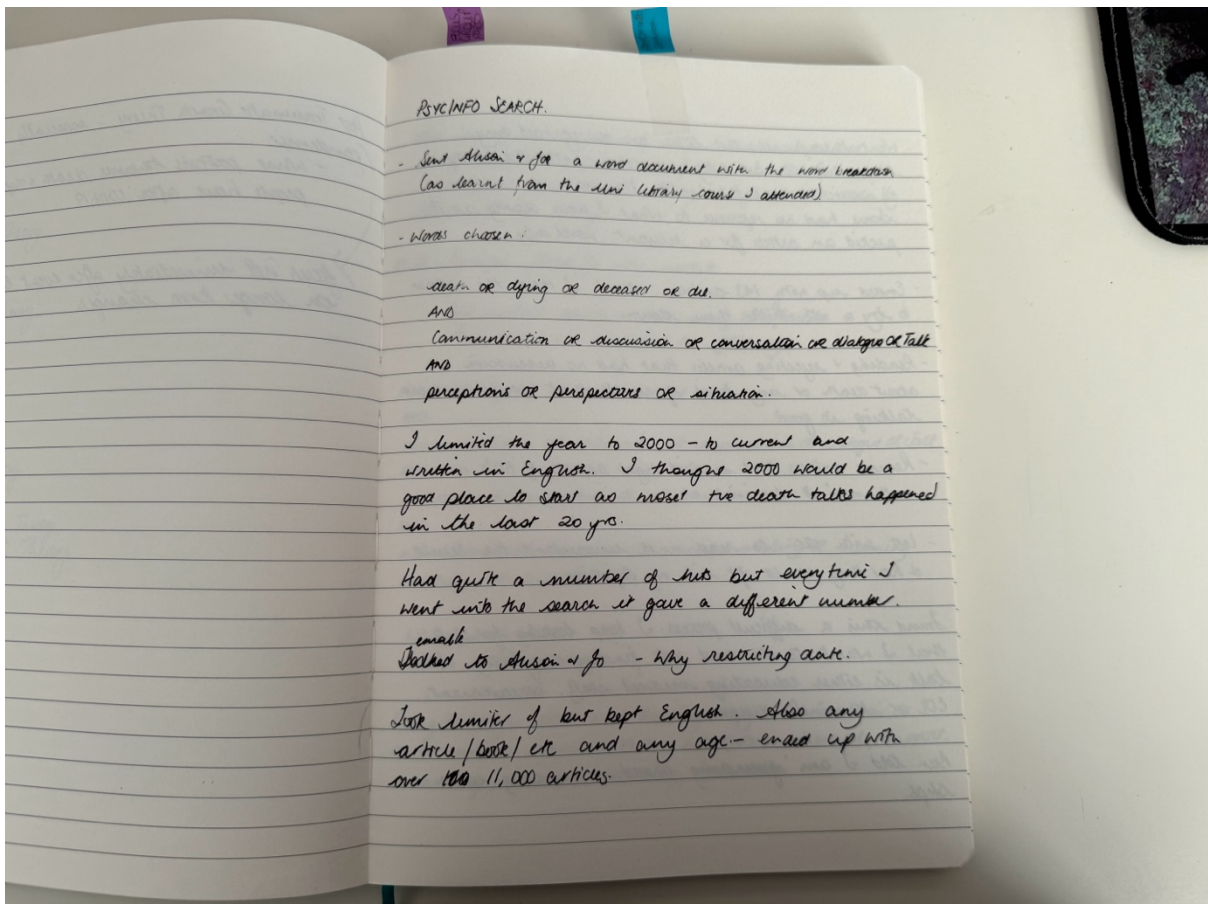 PSYCINFO SEARCH.
- Sent Alison & Joe a word document with the word breakdown
(as learnt from the uni library course I attended)
- Words chosen:
death OR dying OR deceased OR die.
AND
Communication OR discussion OR conversation OR dialogue OR Talk
AND
perceptions OR perspectives OR situation.
I limited the year to 2000 - to current and
written in English. I thought 2000 would be a
good place to start as most the death talks happened
in the last 20 yrs.
Had quite a number of hits but everytime I
went into the search it gave a different number.
emailed
to Alison & Jo - Why restricting date.
Took limiter of but kept English. Also any
article/book/etc and any age - ended up with
over 11,000 articles.